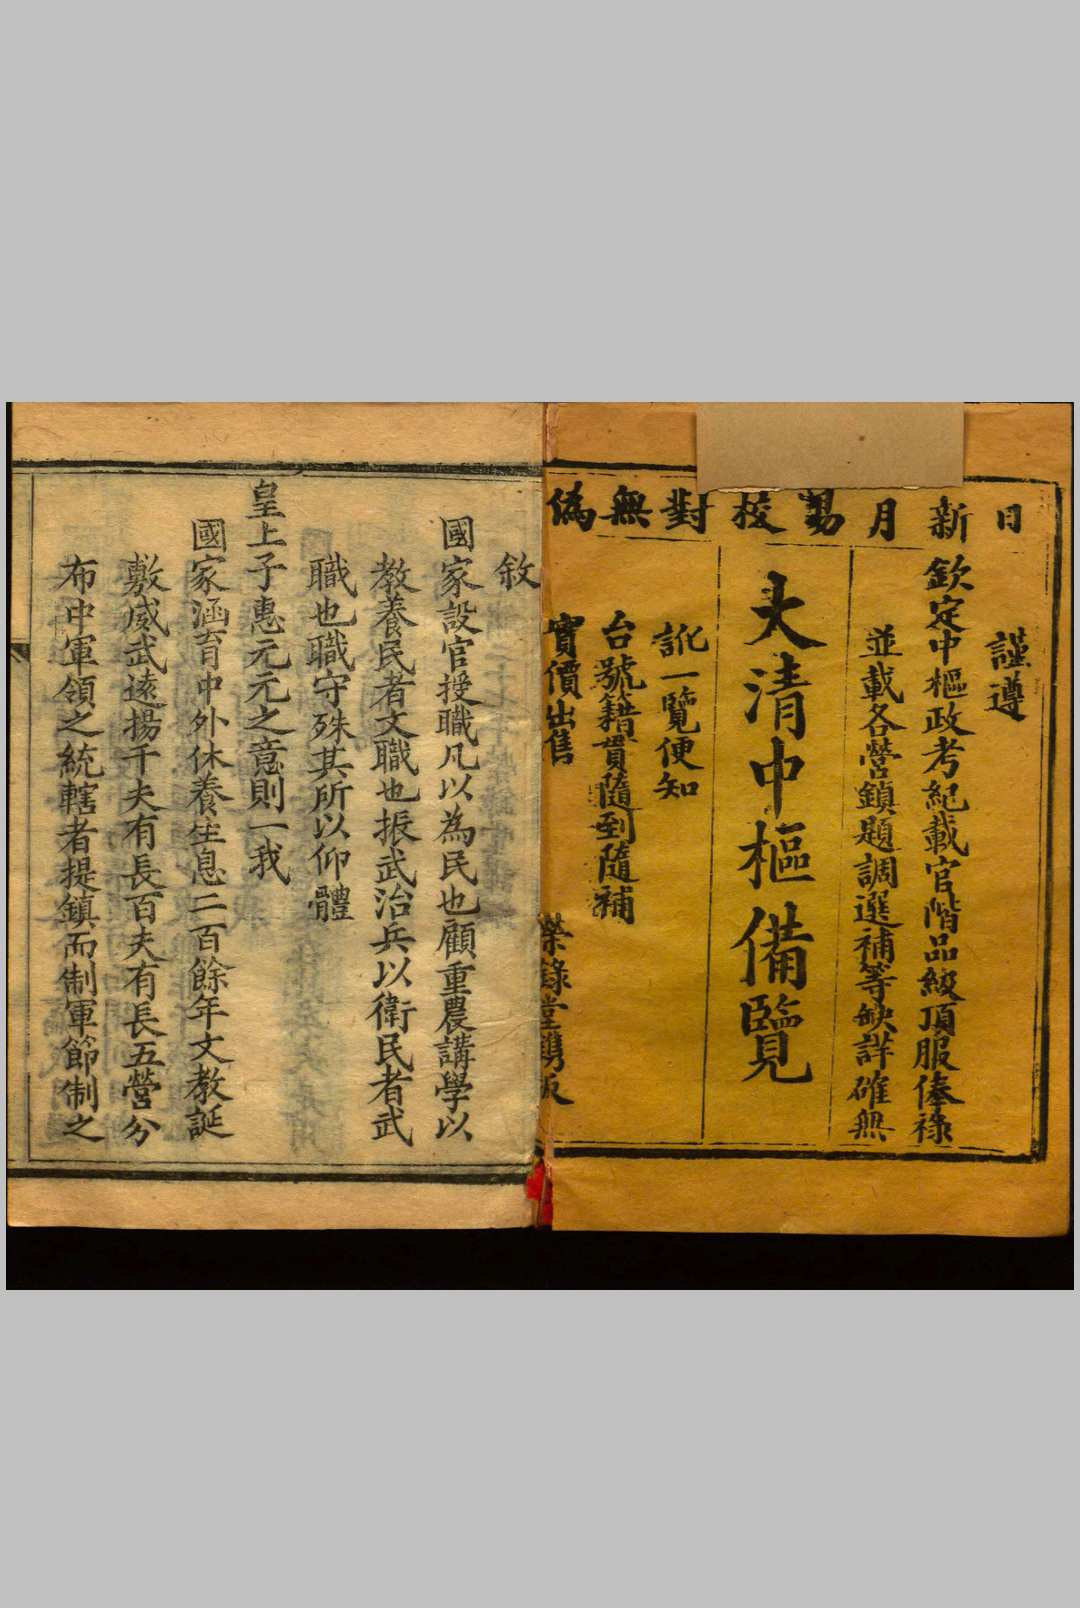 日新月易校對無偽
謹遵
欽定中樞政考紀載官階品級頂服俸祿
並載各營鎮題調選補等缺詳確無
大清中樞備覽
訛一覽便知
台號籍貫隨到隨補
實價出售
榮錄堂鐫板
敘
國家設官授職凡以為民也顧重農講學以
教養民者文職也振武治兵以衛民者武
職也職守殊其所以仰體
皇上子惠元元之意則一我
國家涵育中外休養生息二百餘年文教誕
敷威武遠揚千夫有長百夫有長五營分
布中軍領之統轄者提鎮而制軍節制之